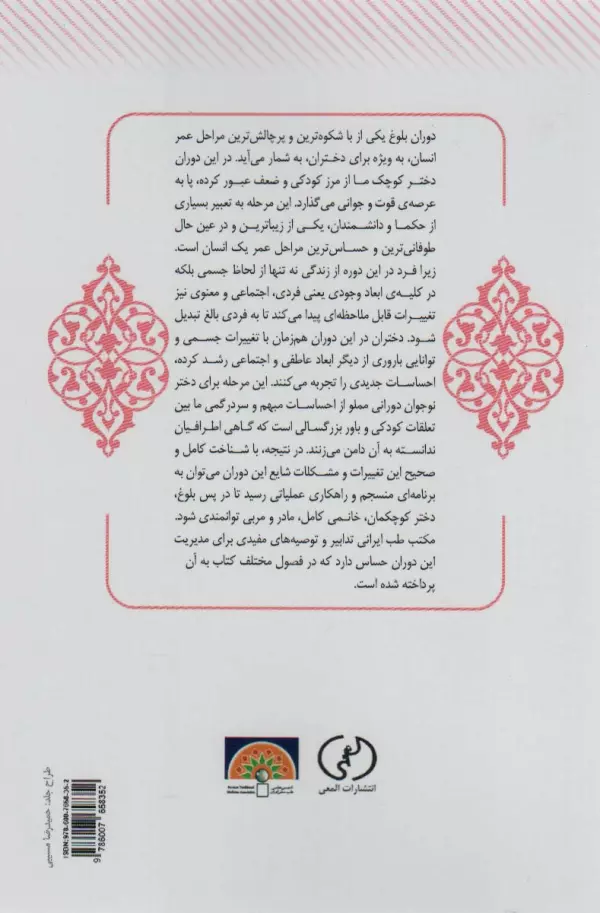 دوران بلوغ یکی از با شکوه‌ترین و پرچالش‌ترین مراحل عمر
انسان، به ویژه برای دختران، به شمار می‌آید. در این دوران
دختر کوچک ما از مرز کودکی و ضعف عبور کرده، پا به
عرصه‌ی قوت و جوانی می‌گذارد. این مرحله به تعبیر بسیاری
از حکما و دانشمندان، یکی از زیباترین و در عین حال
طوفانی‌ترین و حساس‌ترین مراحل عمر یک انسان است.
زیرا فرد در این دوره از زندگی نه تنها از لحاظ جسمی بلکه
در کلیه‌ی ابعاد وجودی یعنی فردی، اجتماعی و معنوی نیز
تغییرات قابل ملاحظه‌ای پیدا می‌کند تا به فردی بالغ تبدیل
شود. دختران در این دوران هم‌زمان با تغییرات جسمی و
توانایی باروری از دیگر ابعاد عاطفی و اجتماعی رشد کرده،
احساسات جدیدی را تجربه می‌کنند. این مرحله برای دختر
نوجوان دورانی مملو از احساسات مبهم و سردرگمی ما بین
تعلقات کودکی و باور بزرگسالی است که گاهی اطرافیان
ندانسته به آن دامن می‌زنند. در نتیجه، با شناخت کامل و
صحیح این تغییرات و مشکلات شایع این دوران می‌توان به
برنامه‌ای منسجم و راهکاری عملیاتی رسید تا در پس بلوغ،
دختر کوچکمان، خانمی کامل، مادر و مربی توانمندی شود.
مکتب طب ایرانی تدابیر و توصیه‌های مفیدی برای مدیریت
این دوران حساس دارد که در فصول مختلف کتاب به آن
پرداخته شده است.
انتشارات المعی
طراح جلد: حمیدرضا مسیبی
ISBN:978-600-7658-35-2
9 786007 658352